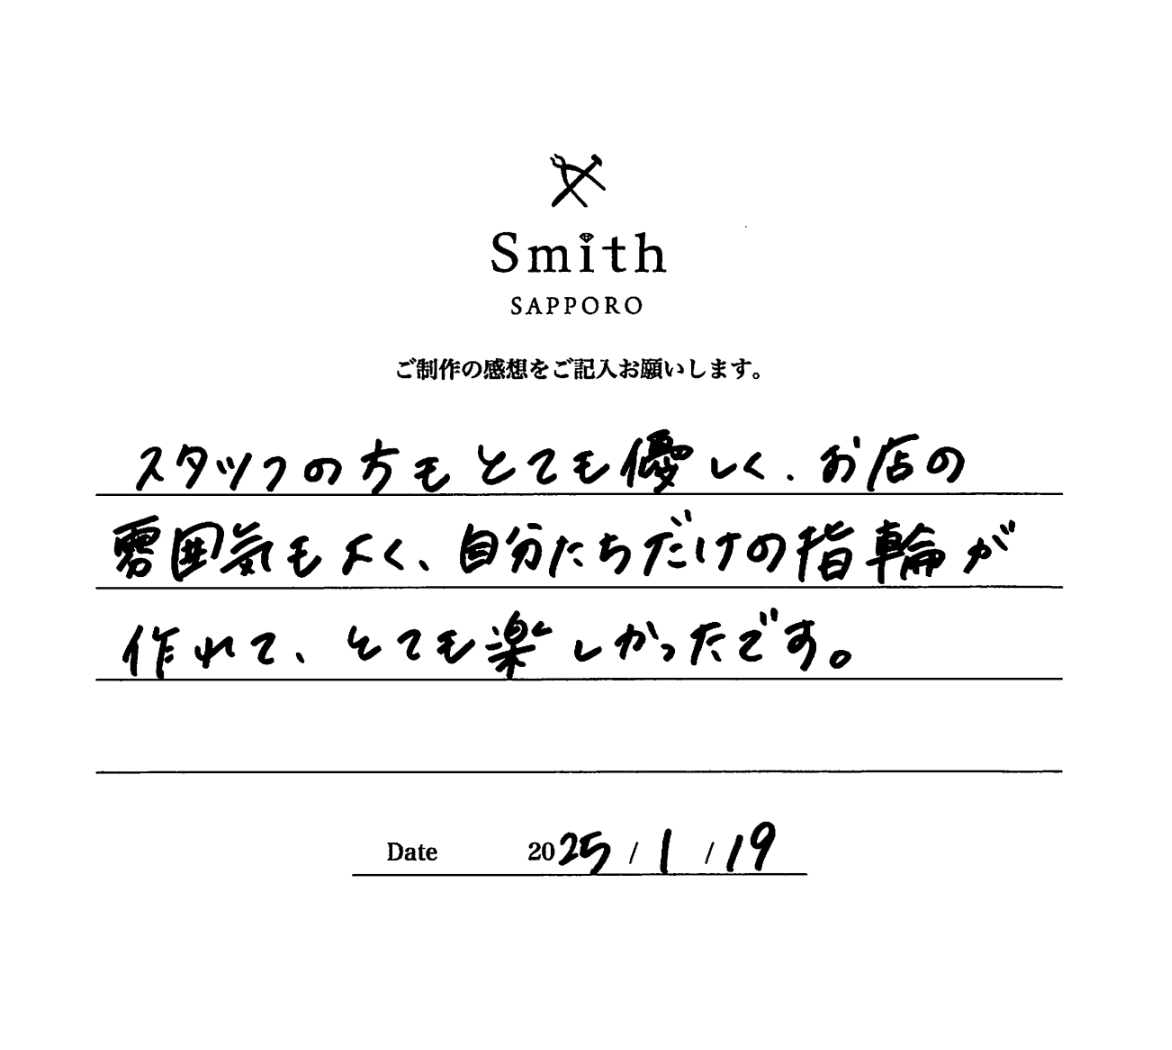 Smith
SAPPORO
ご制作の感想をご記入お願いします。
スタッフの方もとても優しく、お店の
雰囲気もよく、自分たちだけの指輪が
作れて、とても楽しかったです。
Date 2025 / 1 / 19